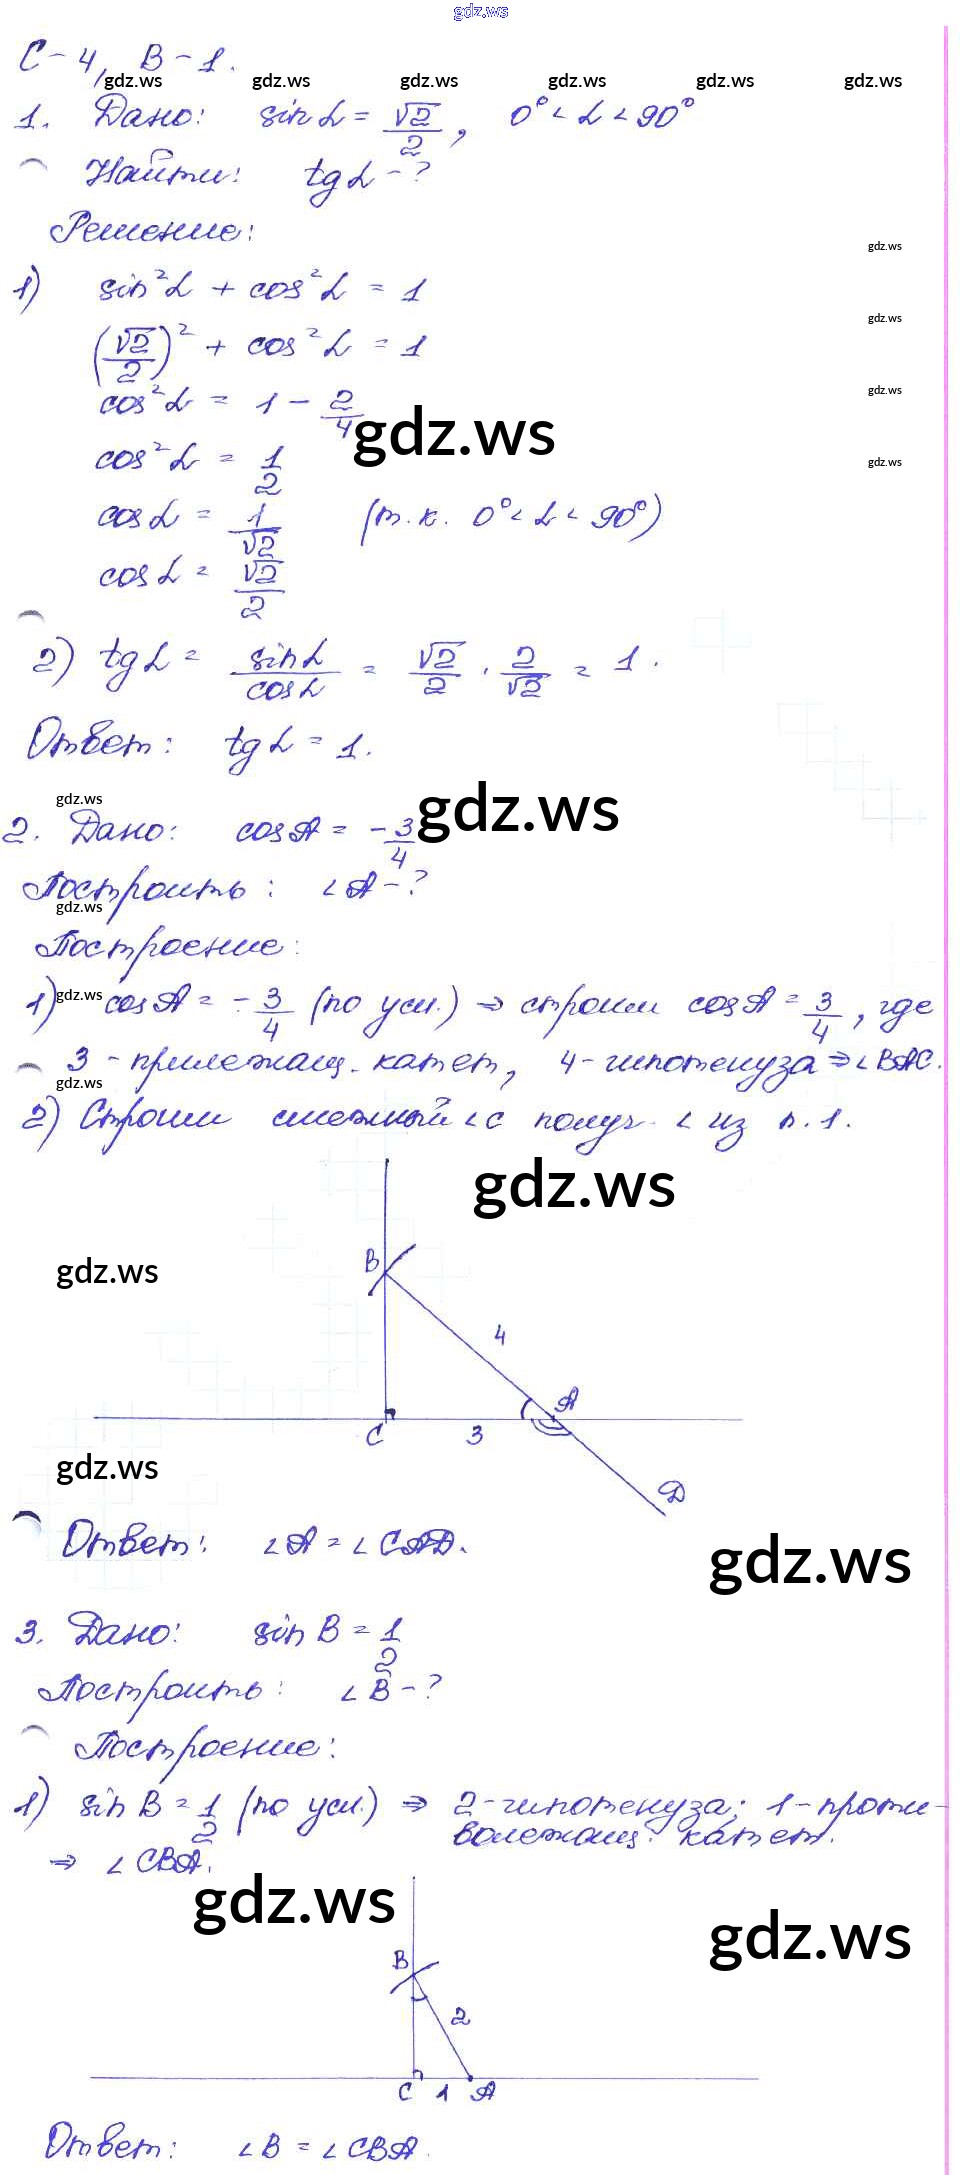 gdz.ws
С-4, В-1.
gdz.ws gdz.ws gdz.ws gdz.ws gdz.ws gdz.ws
1. Дано: sin α = √2/2, 0° < α < 90°
Найти: tg α - ?
Решение:
gdz.ws
1) sin²α + cos²α = 1
gdz.ws
(√2/2)² + cos²α = 1
gdz.ws
cos²α = 1 - 2/4
gdz.ws
cos²α = 1/2
gdz.ws
cos α = 1/√2 (т.к. 0° < α < 90°)
cos α = √2/2
2) tg α = sin α/cos α = √2/2 · 2/√2 = 1.
Ответ: tg α = 1.
gdz.ws gdz.ws
2. Дано: cos A = -3/4
Построить: ∠A - ?
gdz.ws
Построение:
gdz.ws
1) cos A = -3/4 (по усл.) ⇒ строим cos A = 3/4, где
3 - прилежащ. катет, 4 - гипотенуза ⇒ ∠BAC.
gdz.ws
2) Строим смежный ∠ с получ. ∠ из п. 1.
gdz.ws
B
gdz.ws
4
A
C 3
gdz.ws
D
Ответ: ∠A = ∠CAD.
gdz.ws
3. Дано: sin B = 1/2
Построить: ∠B - ?
Построение:
1) sin B = 1/2 (по усл.) ⇒ 2 - гипотенуза; 1 - проти-
волежащ. катет.
⇒ ∠CBA.
gdz.ws gdz.ws
B
2
C 1 A
Ответ: ∠B = ∠CBA.